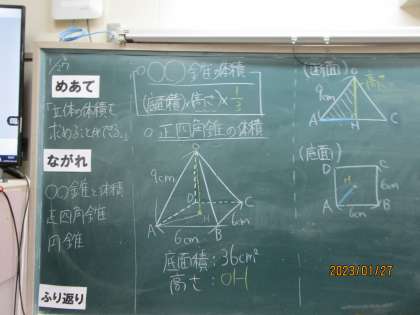 1/27
めあて
「立体の体積を
求めることができる。」
ながれ
○○錐と体積
正四角錐
円錐
ふり返り
○○錐の体積
(底面積)×(高さ)×1/3
正四角錐の体積
O
9cm
D
H
C
A
B
6cm
6cm
底面積:36cm²
高さ:OH
(断面)
O
高さ
9cm
A
H
C
(底面)
D
C
H
6cm
A
B
6cm
2023/01/27